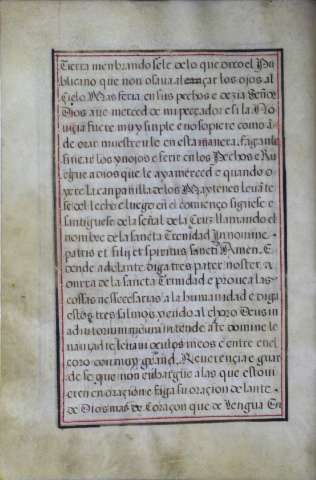 Tierra menbrandosele de lo que dixo el Pu
blicano que non osava alcançar los ojos al
Cielo Mas feria en sus pechos e dezia Señor
Dios ave merced de mi pecador e si la No
viçia fuere muy sinple e no sopiere como a
de orar muestrenle en esta manera. faganle
fincar los ynojos e ferir en los Pechos e Ru
egue a dios que le aya merced e quando o
yere la canpanilla de los Maytenes levāte
se del lecho e luego en el comienço signese e
santiguese de la señal de la Cruz llamando el
nombre de la sancta Trenidad In nomine
patris et filij et spiritus sancti Amen. E
dende adelante diga tres pater noster. a
onrra de la sancta Trenidad e provea las
cossas nessecesarias a la humanidad e diga
estos tres salmos. yendo al choro Deus in
adiutorium meum intende a te domine le
navi ad te levavi oculos meos e entre en el
coro con muy grand. Reverençia e guar
de se que non enbargue a las que estovi
eren en oraçion e faga su oraçion delante
de Dios mas de Coraçon que de lengua En